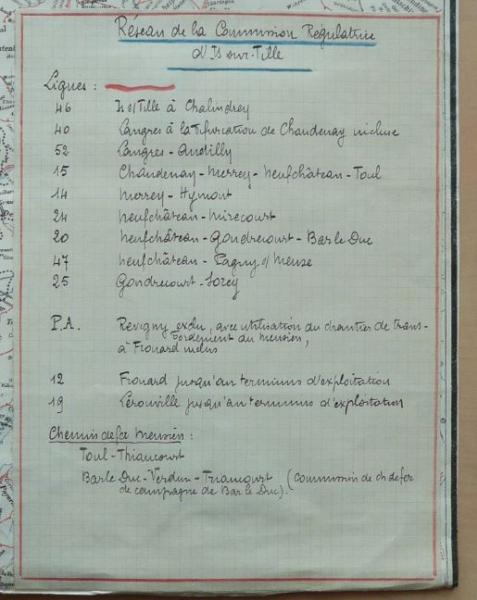 Réseau de la Commission Régulatrice
d'Is sur-Tille
Lignes :
46 Is s/ Tille à Chalindrey
40 Langres à la bifurcation de Chaudenay incluse
52 Langres - Andilly
15 Chaudenay - Merrey - Neufchâteau - Toul
14 Merrey - Hymont
24 Neufchâteau - Mirecourt
20 Neufchâteau - Gondrecourt - Bar le Duc
47 Neufchâteau - Pagny s/ Meuse
25 Gondrecourt - Sorcy
P.A. Revigny exclu, avec utilisation du chantier de trans-
bordement du meusien,
à Frouard inclus
12 Frouard jusqu'au terminus d'exploitation
19 Lérouville jusqu'au terminus d'exploitation
Chemin de fer meusien :
Toul - Thiaucourt
Bar le Duc - Verdun - Triaucourt (Commission de ch de fer
de campagne de Bar le Duc).